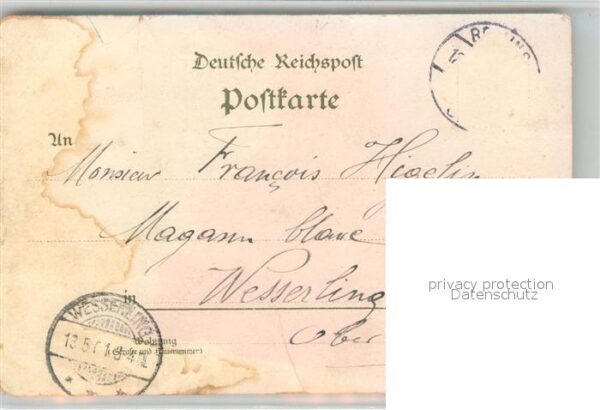 Deutsche Reichspost
Postkarte
An
Monsieur François
Magasin blanc
in Wesserling
Wohnung
(Straße und Hausnummer)
Ober
WESSERLING
privacy protection
Datenschutz